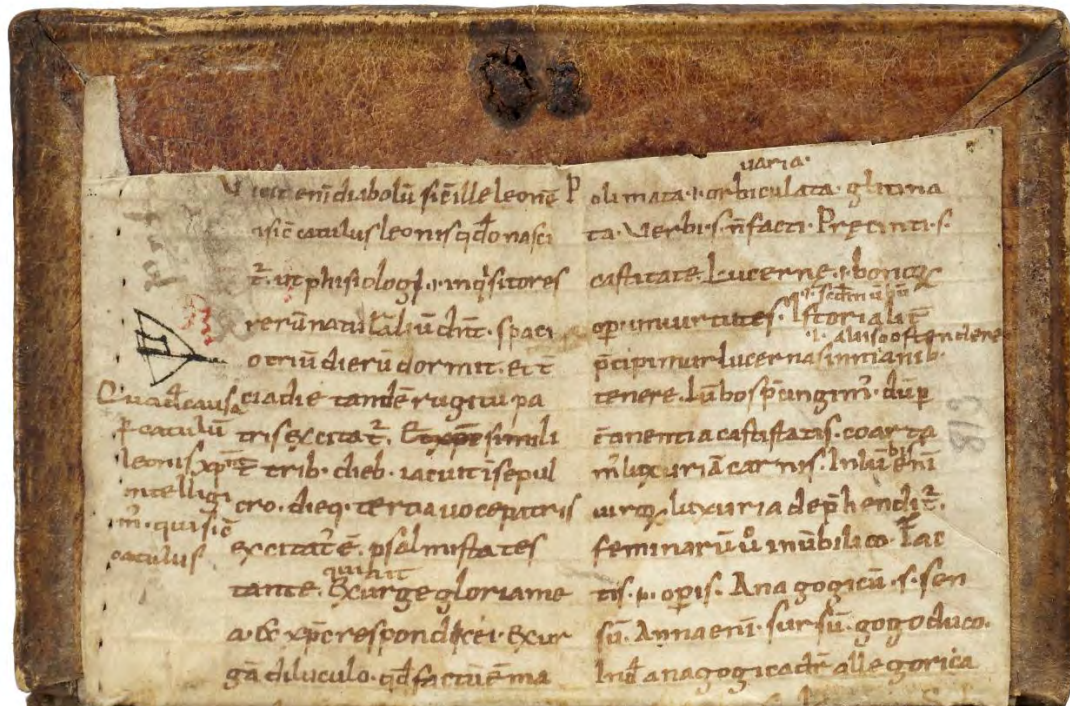 enī diabolū sic̄ ille leonē
sic̄ catulus leonis qd̄o nasci
t᷑. ut phisiologi .i. inq̇sitores
rerū naturaliū dn̄t. spaci
o triū dierū dormit. et t̄
cia die tandē rugitu pa
tris excitat᷑. Et xp̄c simili
t̄ trib. dieb. iacuit ī sepul
cro. dieq. tertia uoce patris
excitat᷑ ē. psalmista tes
quī ait
tante. Exurge gloria me
a. & xp̄c respondit ei. Exur
gā diluculo. qd̄ factū ē ma
Quā d̄ causa
p catulū
leonis xp̄m
intelligi
m᷑. qui sic̄
catulus
uaria.
P olimata .i. orbiculata. glutina
ta. Uerbi .s. n̄ facti. Precinti .s.
castitate. Lucerne .i. bonoꝝ
.i. scdm̄
op. im uirtutes. Istorialit᷑
.i. aliis ostendere
p̄cipimur lucernas in manib.
tenere. Lūbos p̄cingim᷑. dū p
c̄tinentia castitatis. coarta
bis
m᷑ luxuriā carnis. In lū enī
uiroꝝ luxuria dep̄hendit᷑.
feminarū ů in ūbilico. Fac
tis .i. opis. Anagogicū .s. sen
sū. Anna enī. sursū. gogo duco.
Ind̄ anagogica dr̄ allegorica
819